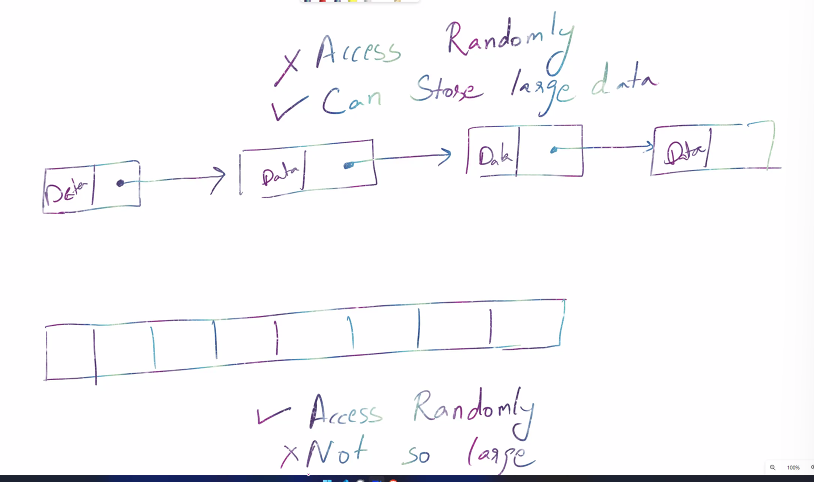 X Access Randomly
✓ Can Store large data
Data Data Data Data
✓ Access Randomly
X Not so large
100%